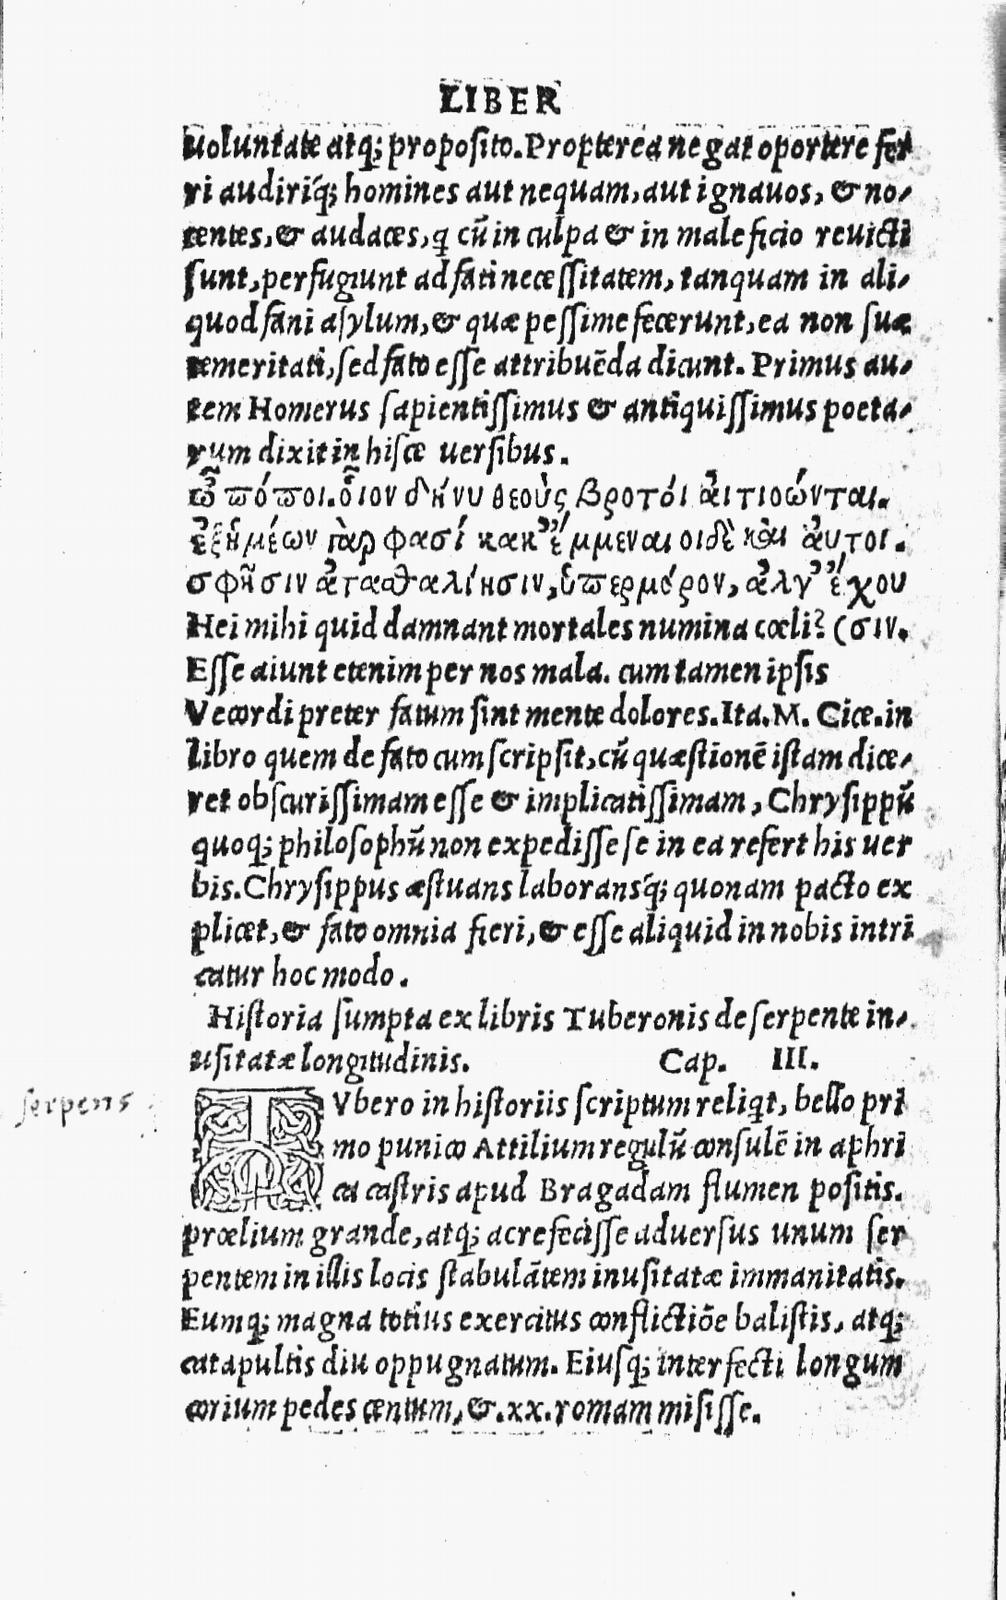 LIBER
uoluntate atq; proposito. Propterea negat oportere fer
ri audiriq́; homines aut nequam, aut ignauos, & no-
centes, & audaces, q cũ in culpa & in maleficio reuicti
sunt, perfugiunt ad fati necessitatem, tanquam in ali-
quod fani asylum, & quæ pessime fecerunt, ea non suæ
temeritati, sed fato esse attribuẽda dicunt. Primus au-
tem Homerus sapientissimus & antiquissimus poeta-
rum dixit in hisce uersibus.
ὦ πόποι. οἷον δή νυ θεοὺς βροτόι ἀιτιοώνται.
ἐξ ἡμέων γὰρ φασί κακ' ἔμμεναι οι δὲ καὶ ἀυτοι.
σφῇσιν ἀτασθαλίησιν, ὑπερμόρον, ἀλγ' ἔχου
Hei mihi quid damnant mortales numina cœli? (σιν.
Esse aiunt etenim per nos mala. cum tamen ipsis
Vecordi preter fatum sint mente dolores. Ita. M. Cice. in
libro quem de fato cum scripsit, cũ quæstionẽ istam dice-
ret obscurissimam esse & implicatissimam, Chrysippũ
quoq; philosophũ non expedisse se in ea refert his uer
bis. Chrysippus æstuans laboransq́; quonam pacto ex
plicet, & fato omnia fieri, & esse aliquid in nobis intri
catur hoc modo.
Historia sumpta ex libris Tuberonis de serpente in-
usitatæ longitudinis. Cap. III.
serpens
TVbero in historiis scriptum reliqt, bello pri
mo punico Attilium regulũ consulẽ in aphri
ca castris apud Bragadam flumen positis.
prœlium grande, atq; acre fecisse aduersus unum ser
pentem in illis locis stabulãtem inusitatæ immanitatis.
Eumq; magna totius exercitus conflictiõe balistis, atq;
catapultis diu oppugnatum. Eiusq; interfecti longum
corium pedes centum, &. xx. romam misisse.